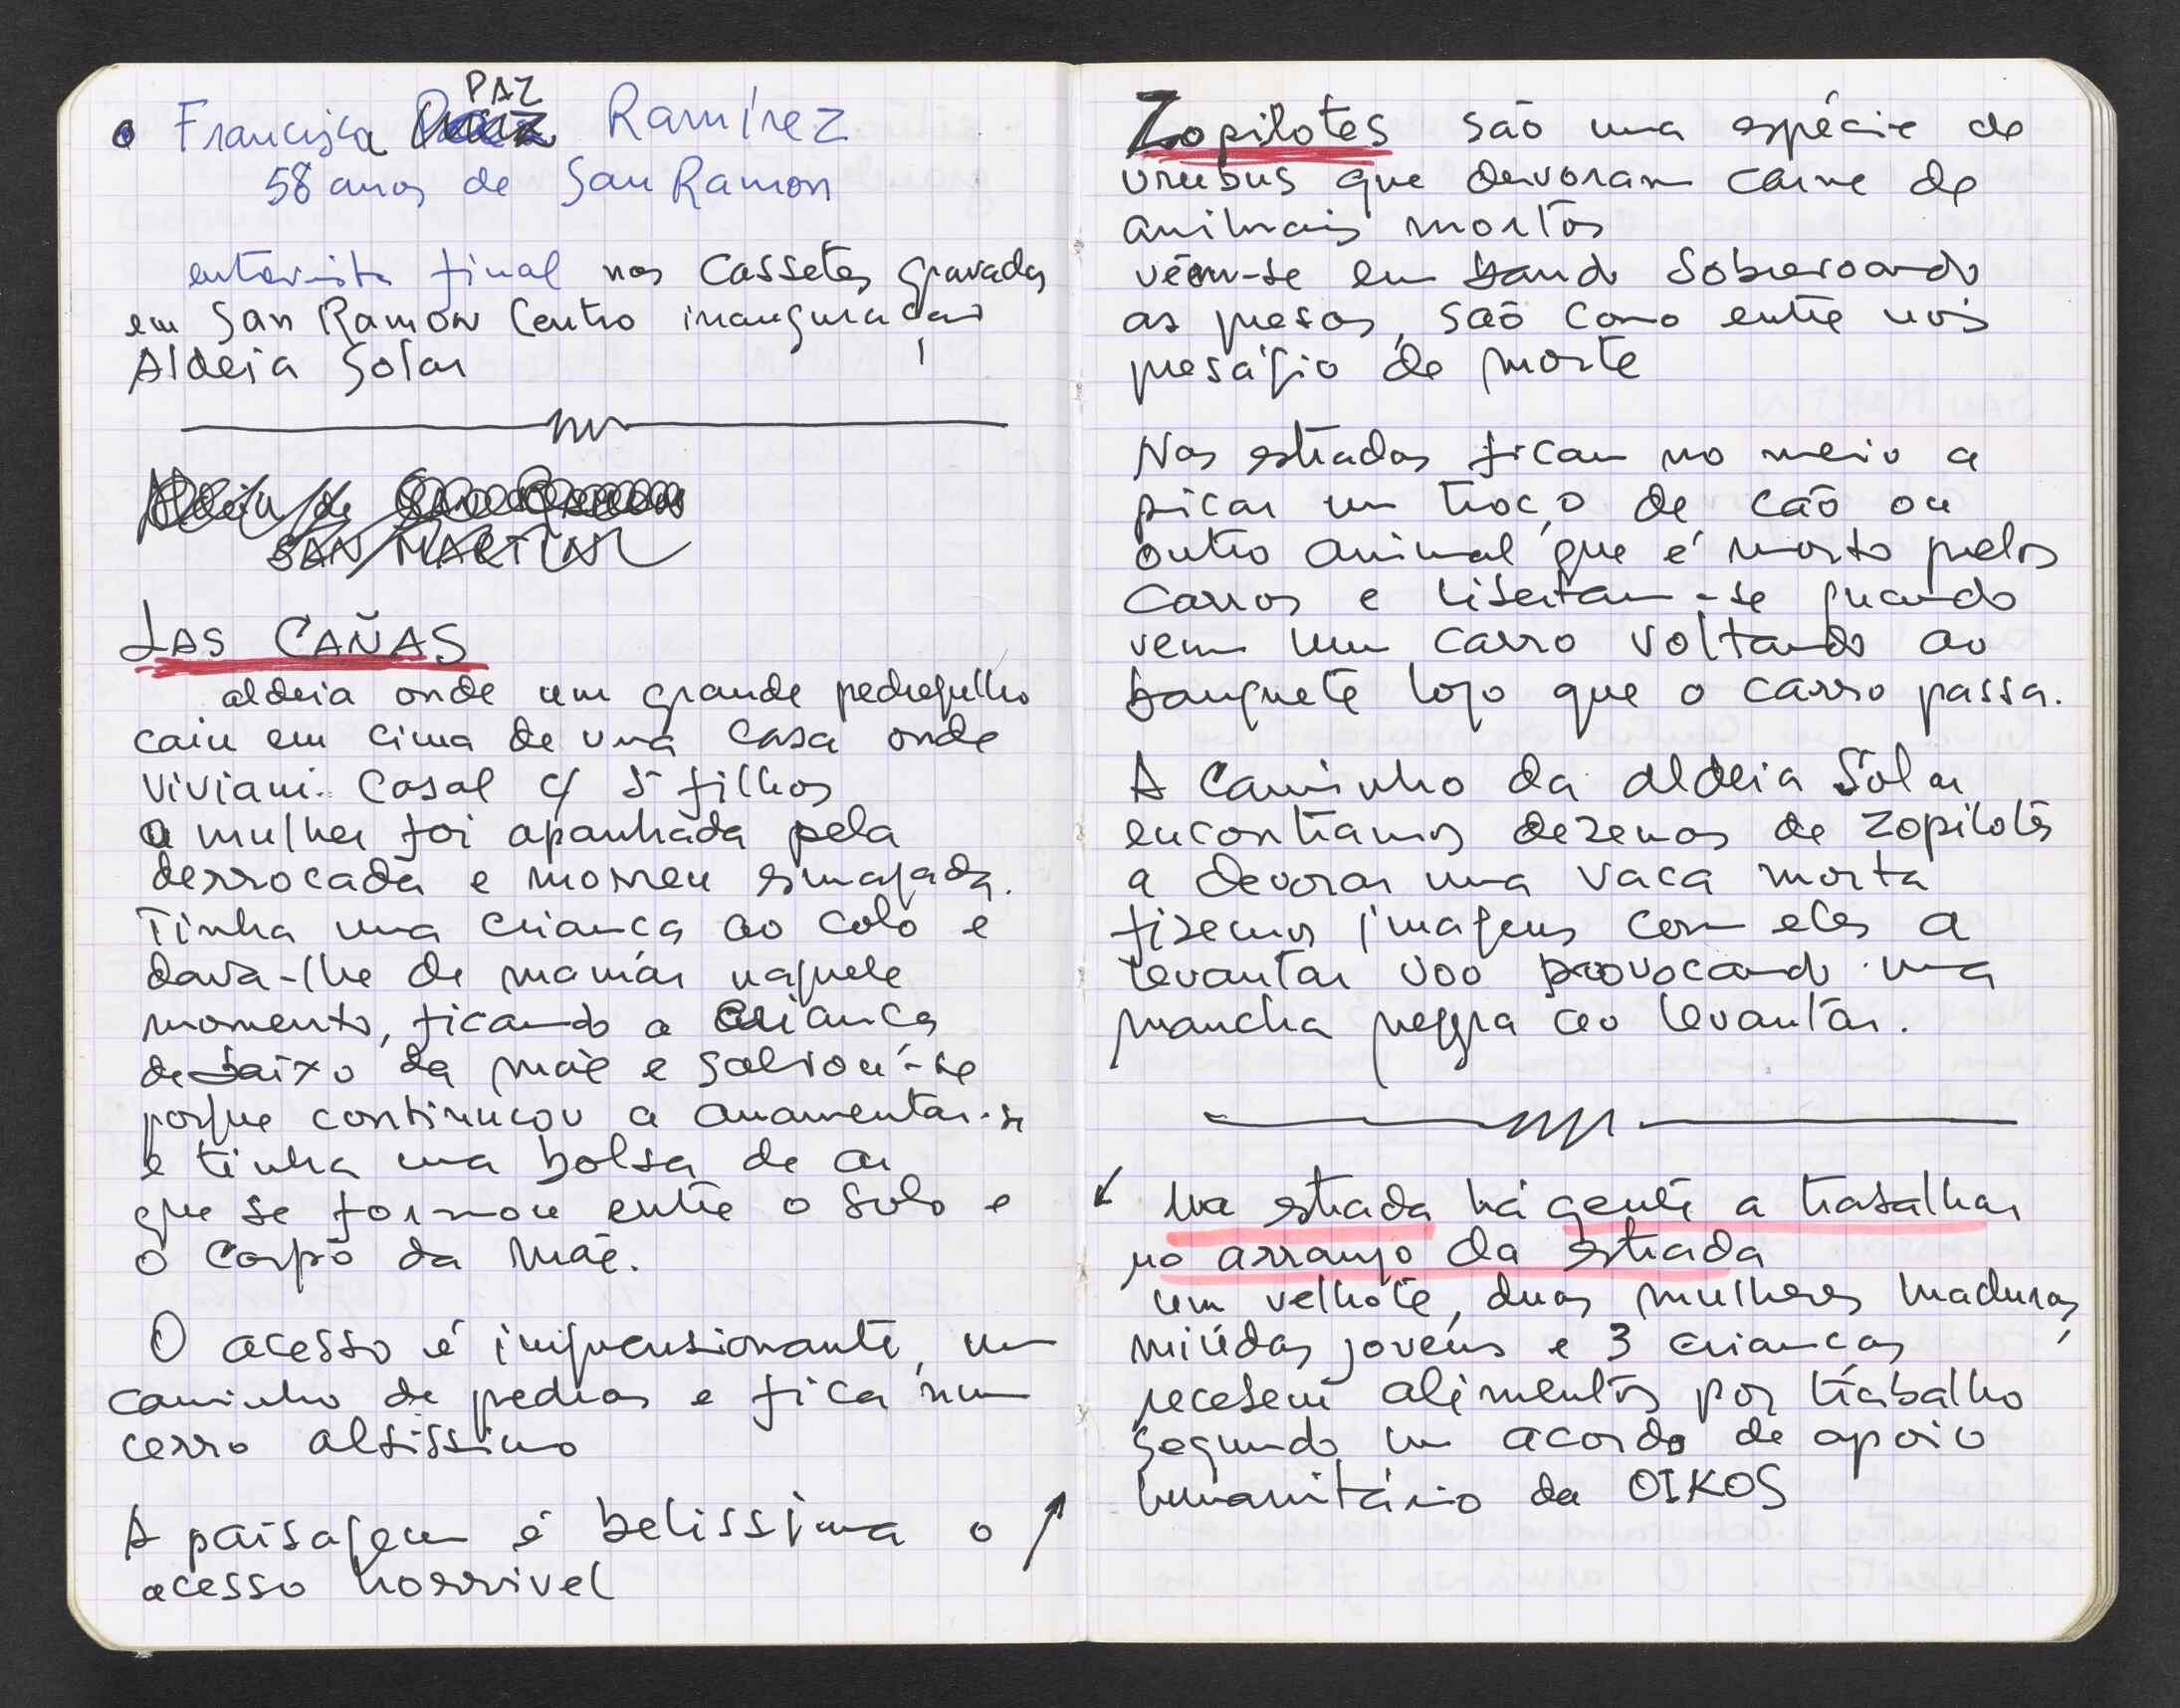 Francisca PAZ Ramírez
58 anos de San Ramon
entrevista final nas cassetes gravadas
em San Ramon Centro inauguração
Aldeia Solar
Aldeia de San Ramon
SAN MARTIN
LAS CAÑAS
aldeia onde um grande pedregulho
caiu em cima de uma casa onde
viviam. Casal c/ 5 filhos
a mulher foi apanhada pela
derrocada e morreu esmagada.
Tinha uma criança ao colo e
dava-lhe de mamar naquele
momento, ficando a criança
debaixo da mãe e salvou-se
porque continuou a amamentar-se
e tinha uma bolsa de ar
que se formou entre o solo e
o corpo da mãe.
O acesso é impressionante, um
caminho de pedras e fica num
cerro altissimo
A paisagem é belissima o
acesso horrivel
Zopilotes são uma espécie de
urubus que devoram carne de
animais mortos
vêem-se em bando sobrevoando
as presas, são como entre nós
preságio de morte
Nas estradas ficam no meio a
picar um troço de cão ou
outro animal que é morto pelos
carros e libertam-se quando
vem um carro voltando ao
banquete logo que o carro passa.
A caminho da aldeia Solar
encontramos dezenas de zopilotes
a devorar uma vaca morta
fizemos imagens com eles a
levantar voo provocando uma
mancha negra ao levantar.
Na estrada há gente a trabalhar
no arranjo da estrada
um velhote, duas mulheres maduras,
miúdas jovens e 3 crianças
recebem alimentos por trabalho
segundo um acordo de apoio
humanitário da OIKOS